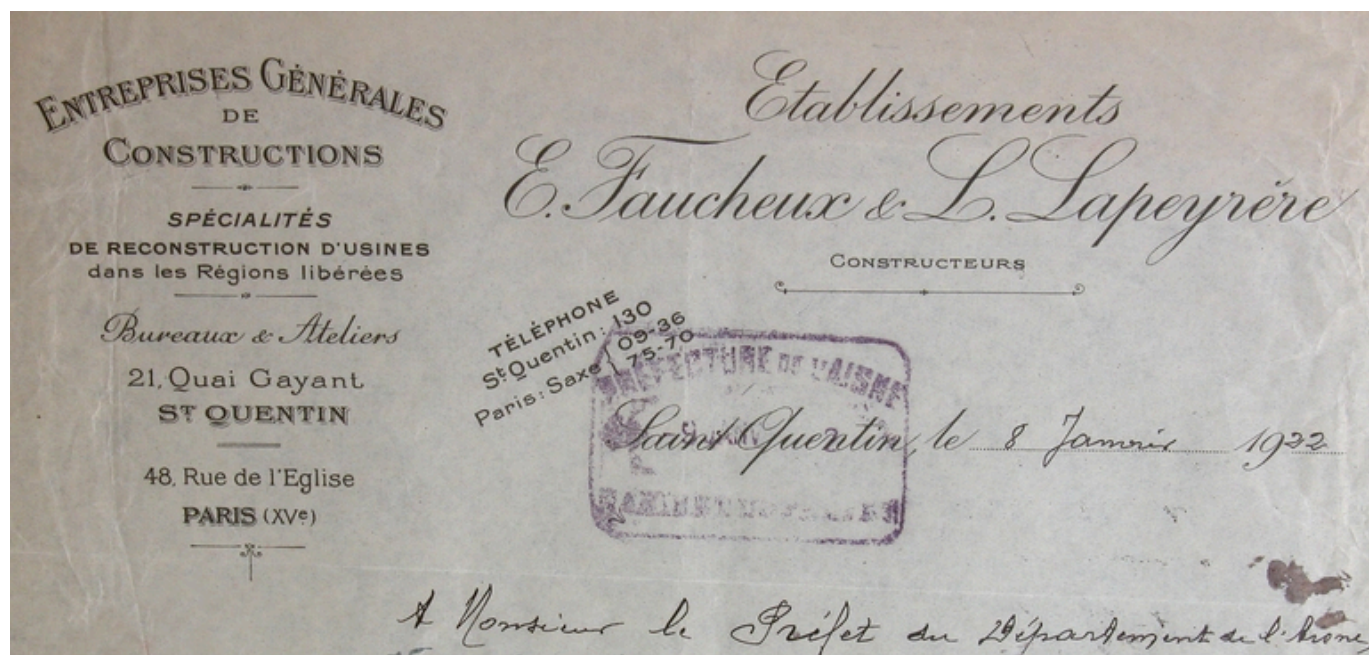 ENTREPRISES GÉNÉRALES
DE
CONSTRUCTIONS
SPÉCIALITÉS
DE RECONSTRUCTION D'USINES
dans les Régions libérées
Bureaux & Ateliers
21, Quai Gayant
ST QUENTIN
48, Rue de l'Eglise
PARIS (XVe)
Etablissements
E. Faucheux & L. Lapeyrère
CONSTRUCTEURS
TÉLÉPHONE
St Quentin: 130
Paris: Saxe { 09-36
75-70
PRÉFECTURE DE L'AISNE
Saint Quentin, le 8 Janvier 1922
A Monsieur le Préfet du Département de l'Aisne